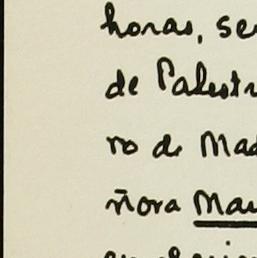 horas, se
de Palestr
ro de Mad
ñora Mau